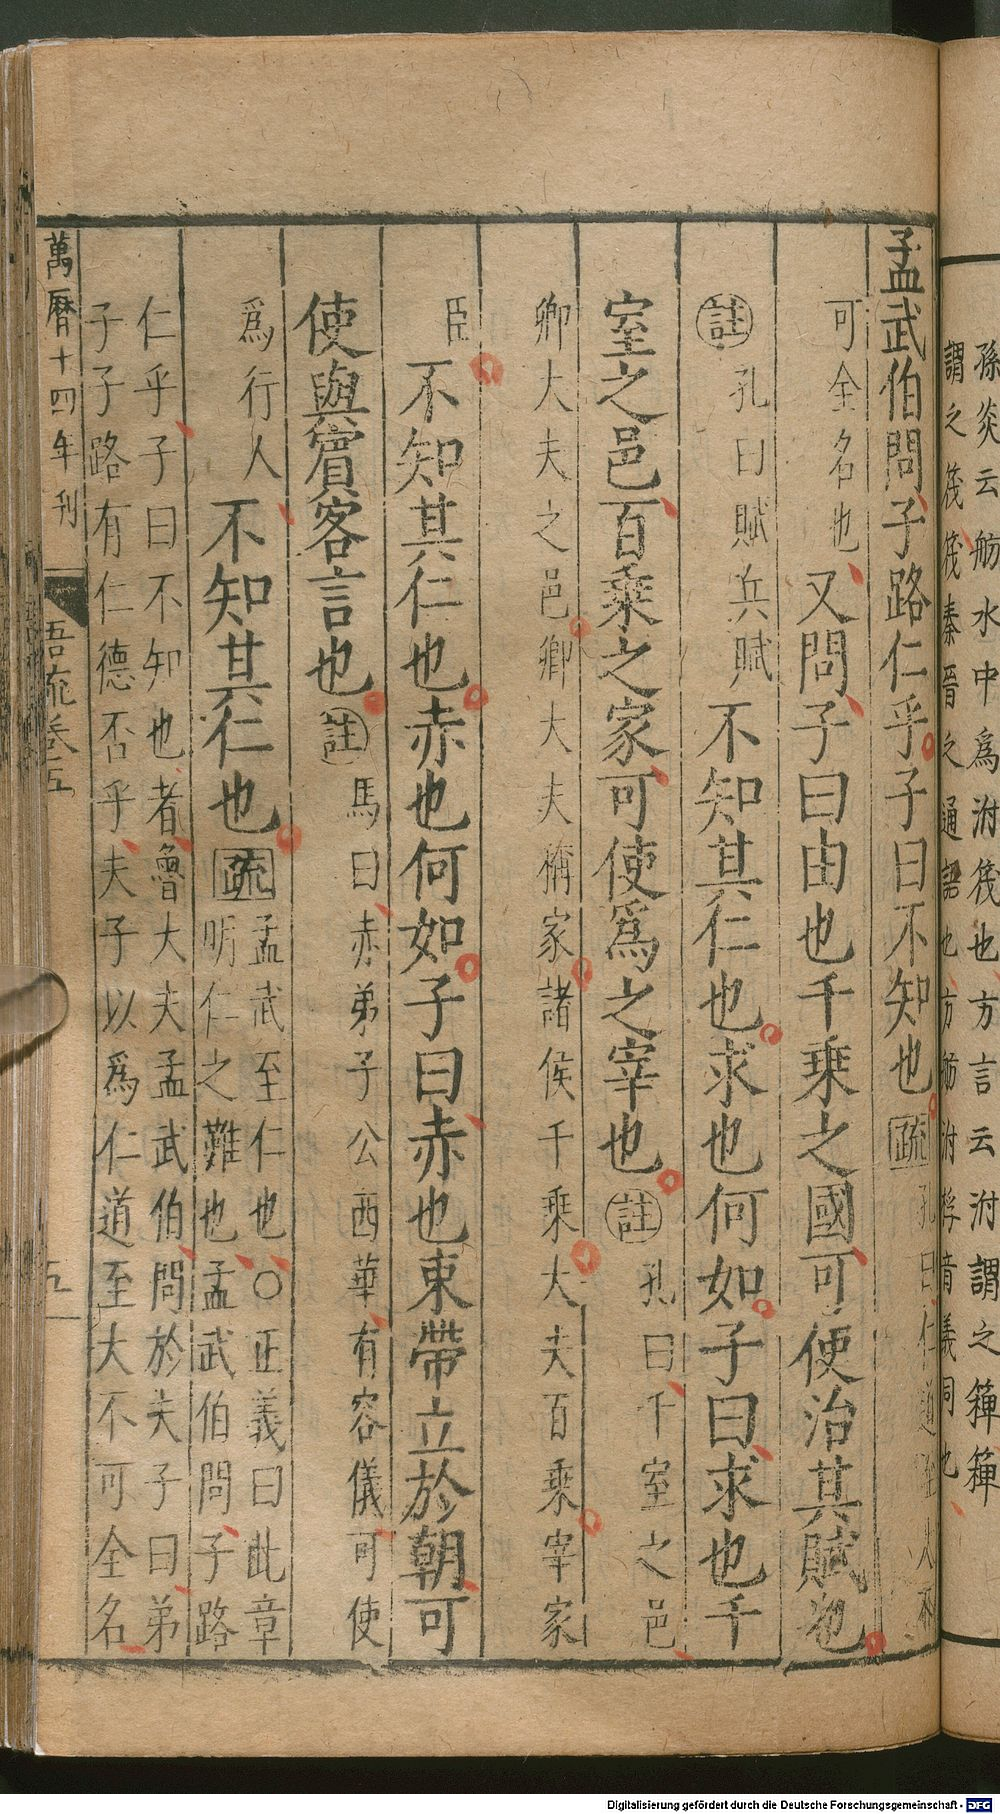 孫炎云舫水中爲泭筏也方言云泭謂之𥴖𥴖
謂之筏筏秦晉之通語也方舫泭桴音義同也
孟武伯問子路仁乎子曰不知也疏孔曰仁道至大不
可全名也又問子曰由也千乘之國可使治其賦也
註孔曰賦兵賦不知其仁也求也何如子曰求也千
室之邑百乘之家可使爲之宰也註孔曰千室之邑
卿大夫之邑卿大夫稱家諸侯千乘大夫百乘宰家
臣不知其仁也赤也何如子曰赤也束帶立於朝可
使與賓客言也註馬曰赤弟子公西華有容儀可使
爲行人不知其仁也疏孟武至仁也○正義曰此章
明仁之難也孟武伯問子路
仁乎子曰不知也者魯大夫孟武伯問於夫子曰弟
子子路有仁德否乎夫子以爲仁道至大不可全名
萬曆十四年刊 吾疏卷五 五
Digitalisierung gefördert durch die Deutsche Forschungsgemeinschaft - DFG